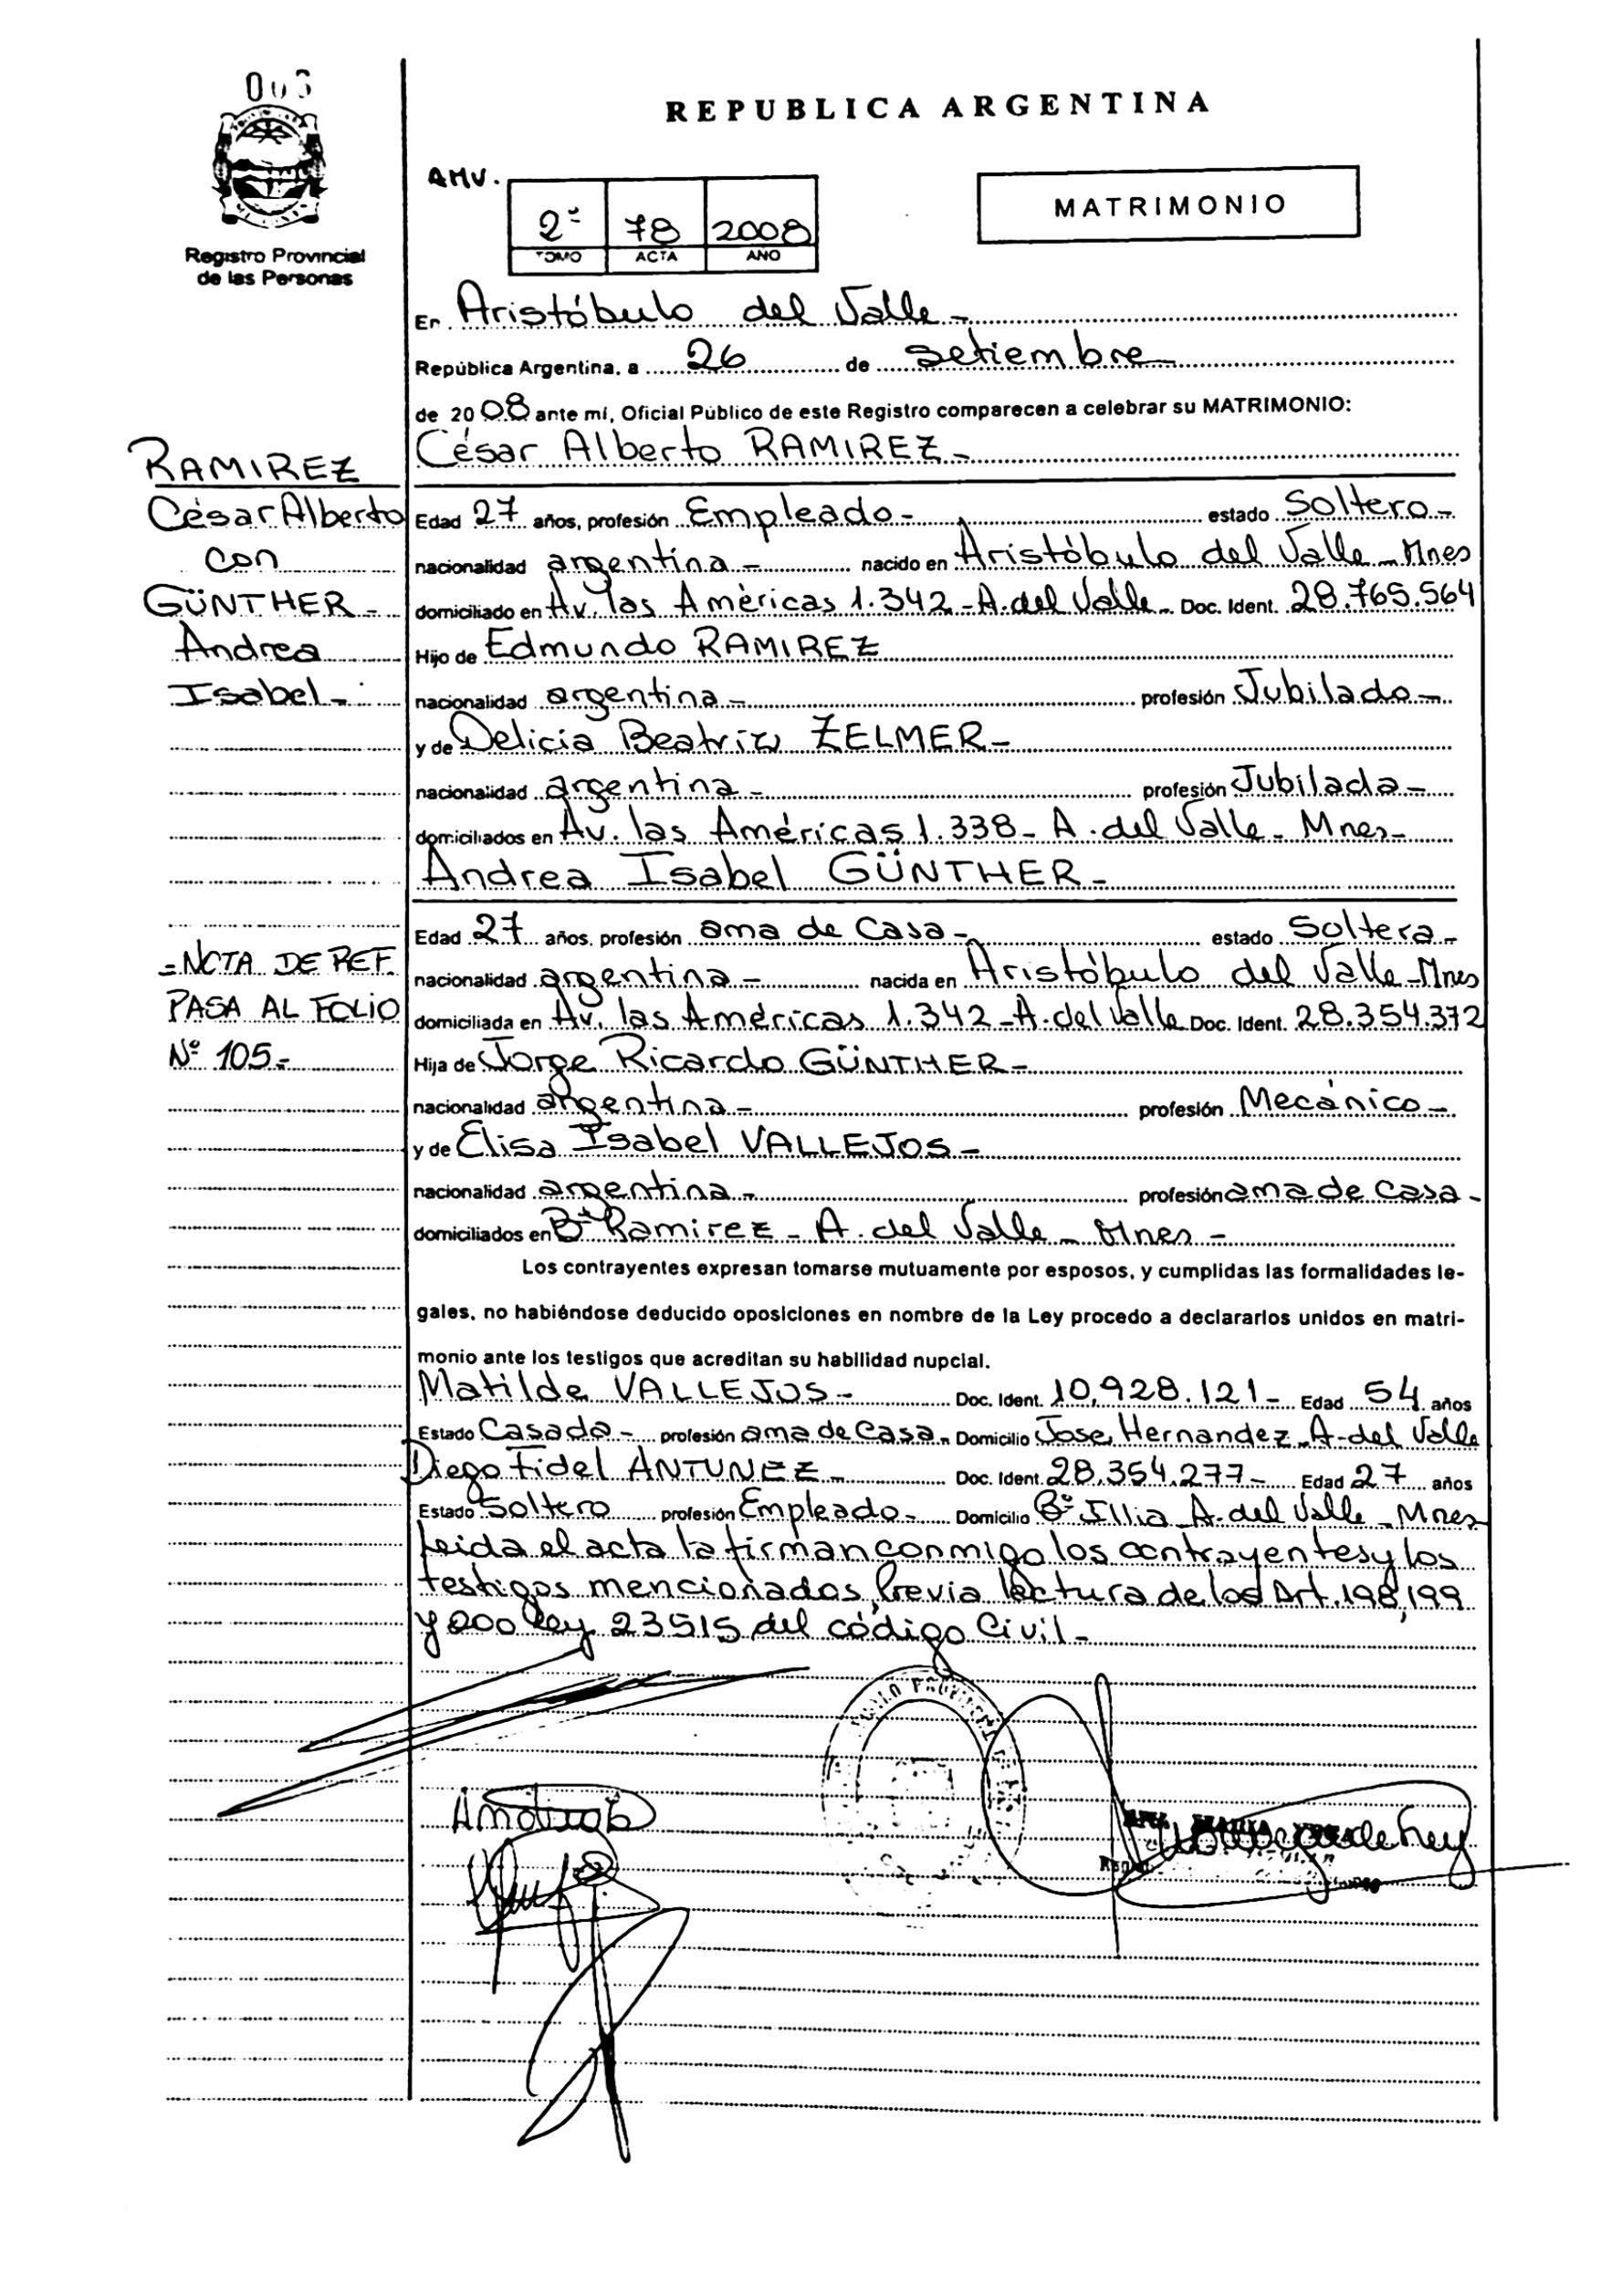 REPUBLICA ARGENTINA
Registro Provincial
de las Personas
AMV.
2º 78 2008
TOMO ACTA AÑO
MATRIMONIO
En Aristóbulo del Valle -
República Argentina, a 26 de setiembre
de 2008 ante mí, Oficial Público de este Registro comparecen a celebrar su MATRIMONIO:
César Alberto RAMIREZ -
RAMIREZ
César Alberto
con
GÜNTHER -
Andrea
Isabel -
Edad 27 años, profesión Empleado - estado Soltero -
nacionalidad argentina - nacido en Aristóbulo del Valle - Mnes
domiciliado en Av. las Américas 1.342 - A. del Valle - Doc. Ident. 28.765.564
Hijo de Edmundo RAMIREZ
nacionalidad argentina - profesión Jubilado -
y de Delicia Beatriz ZELMER -
nacionalidad argentina - profesión Jubilada -
domiciliados en Av. las Américas 1.338 - A. del Valle - Mnes -
Andrea Isabel GÜNTHER -
Edad 27 años, profesión ama de Casa - estado Soltera -
nacionalidad argentina - nacida en Aristóbulo del Valle - Mnes
domiciliada en Av. las Américas 1.342 - A. del Valle Doc. Ident. 28.354.372
Hija de Jorge Ricardo GÜNTHER -
nacionalidad argentina - profesión Mecánico -
y de Elisa Isabel VALLEJOS -
nacionalidad argentina - profesión ama de Casa -
domiciliados en Bº Ramirez - A. del Valle - Mnes -
= NOTA DE REF.
PASA AL FOLIO
Nº 105 -
Los contrayentes expresan tomarse mutuamente por esposos, y cumplidas las formalidades le-
gales, no habiéndose deducido oposiciones en nombre de la Ley procedo a declararlos unidos en matri-
monio ante los testigos que acreditan su habilidad nupcial.
Matilde VALLEJOS - Doc. Ident. 10.928.121 - Edad 54 años
Estado Casada - profesión ama de Casa - Domicilio Jose Hernandez - A. del Valle
Diego Fidel ANTUNEZ - Doc. Ident. 28.354.277 - Edad 27 años
Estado Soltero profesión Empleado - Domicilio Bº Illia - A. del Valle - Mnes
Leida el acta la firman conmigo los contrayentes y los
testigos mencionados, Previa lectura de los Art. 198, 199
y 200 ley 23515 del código Civil -